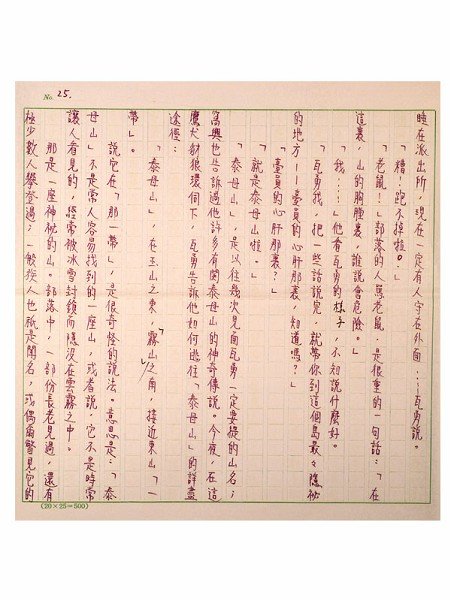 No. 25.
睡在派出所,現在一定有人守在外面……瓦勇說。
「糟!跑不掉啦。」
「老鼠!」部落的人罵老鼠,是很重的一句話:「在
這裏,山的胸膛裏,誰說會危險。」
「我……」他看瓦勇的樣子,不知說什麼好。
「瓦勇我,把一些話說完,就帶你到這個島最々隱祕
的地方——臺員的心肝那裏,知道嗎?」
「臺員的心肝那裏?」
「就是泰母山啦。」
「泰母山」,是以往幾次見面瓦勇一定要提的山名;
興也告訴過他許多有關泰母山的神奇傳說。今夜,在這
鷹犬豺狼環伺下,瓦勇告訴他如何逃往「泰母山」的詳盡
途徑:
「泰母山」,在玉山之東,「霧山」之角,接近東山「一
帶」。
說它在「那一帶」,是很奇怪的說法。意思是:「泰
母山」不是常人容易找到的一座山,或者說,它不是時常
讓人看見的,經常被冰雪封鎖而隱沒在雲霧之中。
那是一座神祕的山。部落中,一部份長老見過,還有
極少數人攀登過;一般族人也祇是聞名,或偶爾瞥見它的
(20×25=500)